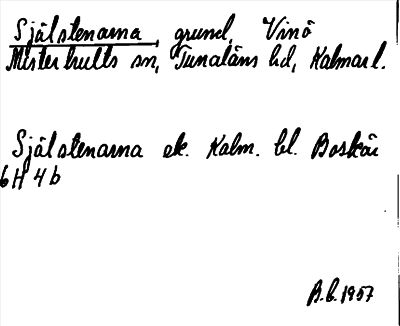 Själstenarna, grund, Vinö
Misterhults sn, Tunaläns hd, Kalmar l.
Själstenarna ek. Kalm. bl. Boskär
6H 4b
B.L. 1957